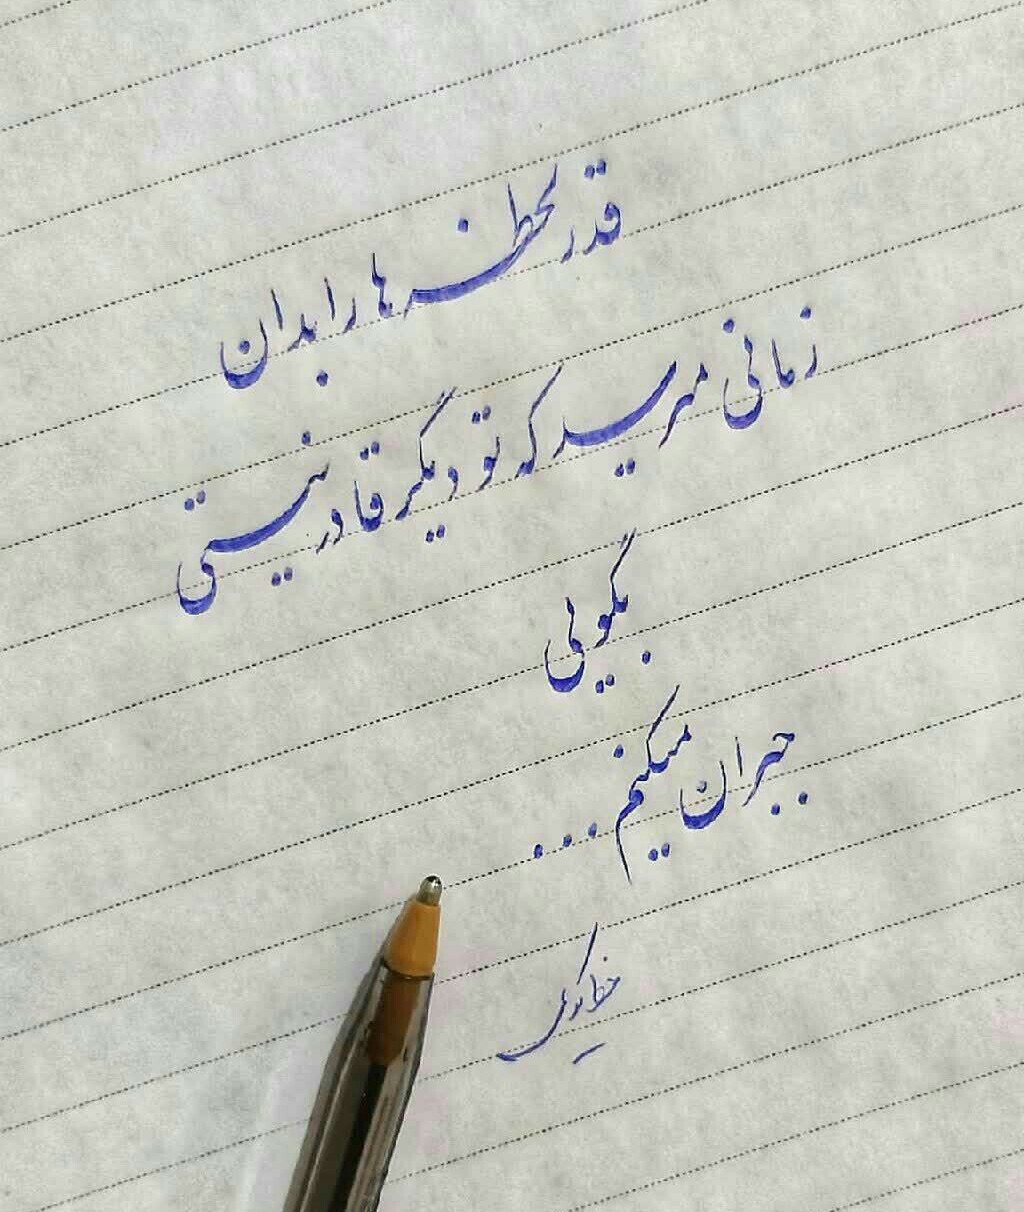 قدر لحظه ها را بدان
زمانی میرسد که تو دیگر قادر نیستی
بگویی
جبران میکنم ...
خط